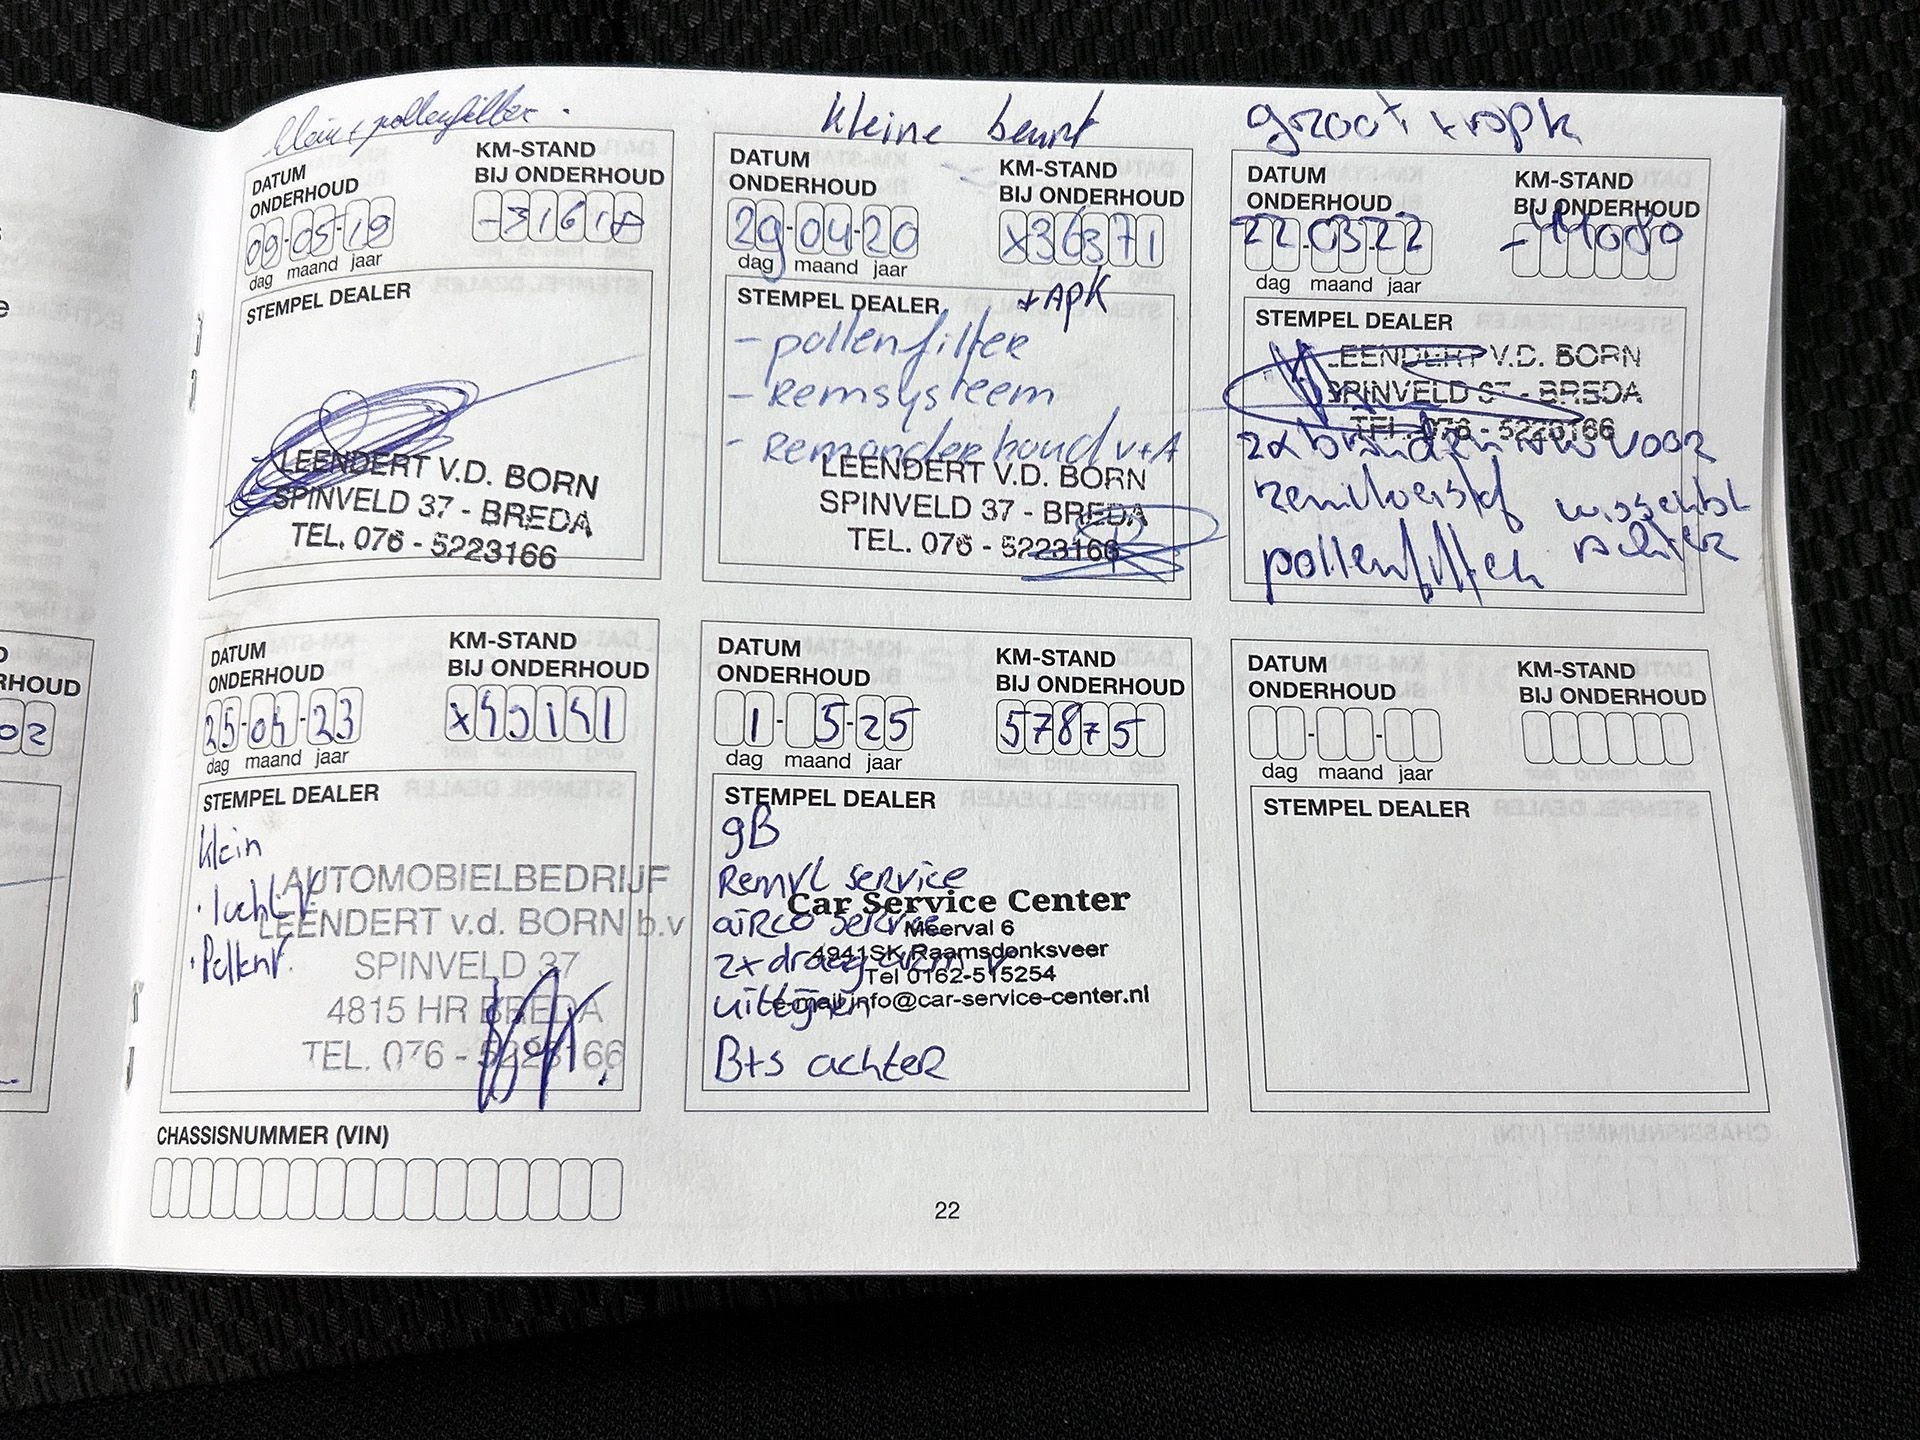 klein + pollenfilter.
DATUM
ONDERHOUD
KM-STAND
BIJ ONDERHOUD
09-05-19
-31618
dag maand jaar
STEMPEL DEALER
LEENDERT V.D. BORN
SPINVELD 37 - BREDA
TEL. 076 - 5223166
kleine beurt
DATUM
ONDERHOUD
KM-STAND
BIJ ONDERHOUD
29-04-20
x36371
dag maand jaar
STEMPEL DEALER
+ APK
- pollenfilter
- Remsysteem
- Remonderhoud v+A
LEENDERT V.D. BORN
SPINVELD 37 - BREDA
TEL. 076 - 5223166
groot + apk
DATUM
ONDERHOUD
KM-STAND
BIJ ONDERHOUD
22-03-22
dag maand jaar
STEMPEL DEALER
LEENDERT V.D. BORN
SPINVELD 37 - BREDA
TEL. 076 - 5223166
2x voor
remvloeistof
pollenfilter
RHOUD
02
DATUM
ONDERHOUD
KM-STAND
BIJ ONDERHOUD
25-04-23
dag maand jaar
STEMPEL DEALER
klein
AUTOMOBIELBEDRIJF
LEENDERT v.d. BORN b.v
SPINVELD 37
4815 HR BREDA
TEL. 076 - 5223166
DATUM
ONDERHOUD
KM-STAND
BIJ ONDERHOUD
1- 5-25
57875
dag maand jaar
STEMPEL DEALER
gB
Remvl service
Car Service Center
airco service
Meerval 6
4941SK Raamsdonksveer
2x draagarm v
Tel 0162-515254
uitlijnen
e-mail info@car-service-center.nl
B+s achter
DATUM
ONDERHOUD
KM-STAND
BIJ ONDERHOUD
dag maand jaar
STEMPEL DEALER
CHASSISNUMMER (VIN)
22